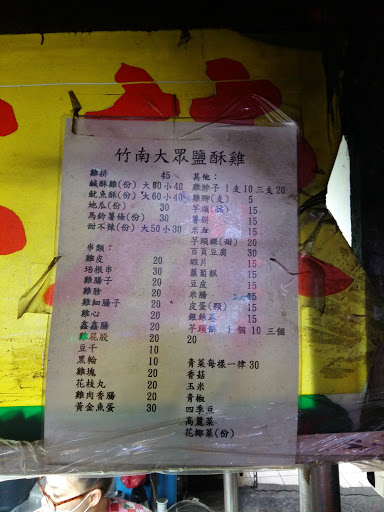 竹南大眾鹽酥雞
雞排 45
鹹酥雞(份) 大80小40
魷魚酥(份) 大60小40
地瓜(份) 30
馬鈴薯條(份) 30
甜不辣(份) 大50小30
串類:
雞皮 20
培根串 30
雞腸子 20
雞胗 20
雞細腸子 20
雞心 20
鑫鑫腸 20
雞屁股 20
豆干 10
黑輪 10
雞塊 20
花枝丸 20
雞肉香腸 20
黃金魚蛋 30
其他:
雞脖子 1支10三支20
雞腳(支) 5
芋頭 15
薯餅 15
米血 15
芋頭粿(甜) 20
百頁豆腐 30
蝦片 15
蘿蔔糕 15
豆皮 15
米腸 15
皮蛋(顆) 15
銀絲卷 15
芋頭餅 1個10三個
20
青菜每樣一律30
香菇
玉米
青椒
四季豆
高麗菜
花椰菜(份)